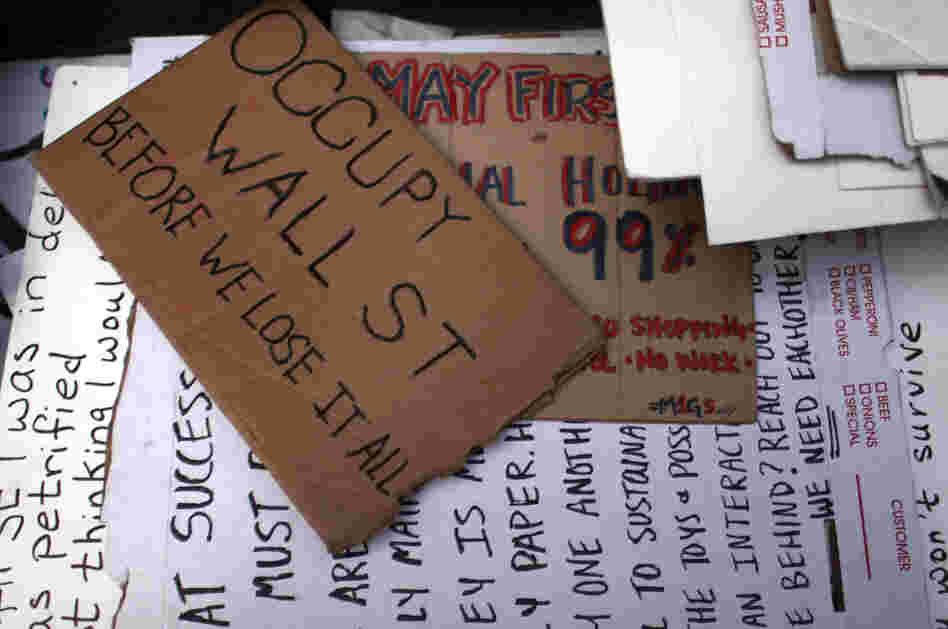 OCCUPY
WALL ST
BEFORE WE LOSE IT ALL
MAY FIRS
99%
SHOPPING
· NO WORK ·
I was in
as petrified
thinking I woul
AT SUCCESS
MUST
ARE
EY IS
Y PAPER.
Y ONE ANOTH
TO SUSTAINA
THE TOYS & POSS
AN INTERACT
E BEHIND? REACH OUT TO
WE NEED EACHOTHER.
PEPPERONI
BLACK OLIVES
BEEF
ONIONS
SPECIAL
CUSTOMER
won't survive
SAUSA
MUSH